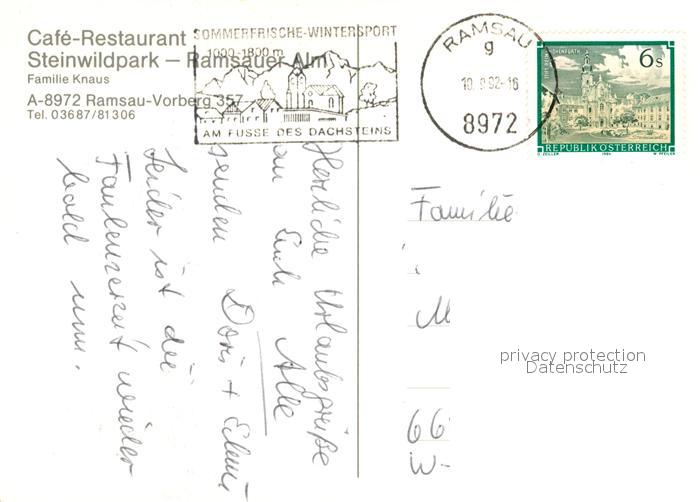 Café-Restaurant
Steinwildpark – Ramsauer Alm
Familie Knaus
A-8972 Ramsau-Vorberg 357
Tel. 03687/81306
SOMMERFRISCHE-WINTERSPORT
1000-1800 m
AM FUSSE DES DACHSTEINS
RAMSAU
g
10.9.92-16
8972
6s
REPUBLIK ÖSTERREICH
Herzliche Urlaubsgrüße
an Euch Alle
senden Doris +
Leider ist die
Faulenzerzeit wieder
bald um.
Familie
M
66
W-
privacy protection
Datenschutz